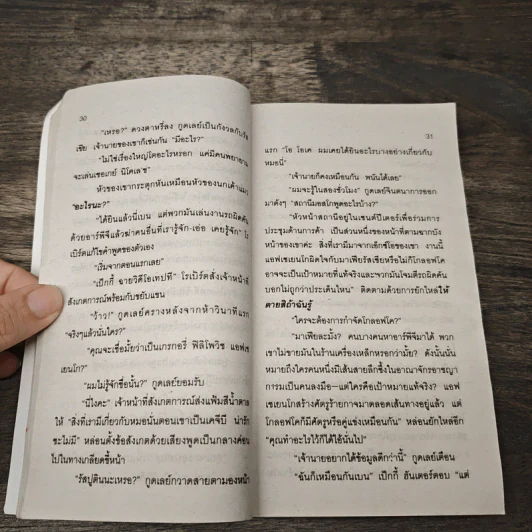 30
"เหรอ?" ดวงตาหรี่ลง กูดเลย์เป็นกังวลกับรัส
เซีย เจ้านายของเขาก็เช่นกัน "มีอะไร?"
"ไม่ใช่เรื่องใหญ่โตอะไรหรอก แค่มีคนพยายาม
จะเล่นเซอเกย์ นิโคเลฟ"
หัวของเขากระตุกหันเหมือนหัวของนกเค้าแมว
"อะไรนะ?"
"ได้ยินแล้วนี่เบน แต่พวกมันเล่นงานรถผิดคัน
ด้วยอาร์พีจีแล้วฆ่าคนอื่นที่เรารู้จัก-เอ่อ เคยรู้จัก" โร
เบิร์ตแก้ไขคำพูดของตัวเอง
"เริ่มจากตอนแรกเลย"
"เป๊กกี้ ฉายวิดีโอเทปที" โรเบิร์ตสั่งเจ้าหน้าที่
สังเกตการณ์พร้อมกับขยับแขน
"ว้าว!" กูดเลย์ครางหลังจากห้าวินาทีแรก
"จริงๆแล้วนั่นใคร?"
"คุณจะเชื่อมั้ยว่าเป็นเกรกอรี่ ฟิลิโพวิช แอฟเซ
เยนโก?"
"ผมไม่รู้จักชื่อนั้น?" กูดเลย์ยอมรับ
"นี่ไงคะ" เจ้าหน้าที่สังเกตการณ์ส่งแฟ้มสีน้ำตาล
ให้ "สิ่งที่เรามีเกี่ยวกับหมอนั่นตอนเขาเป็นเคจีบี น่ารัก
ซะไม่มี" หล่อนตั้งข้อสังเกตด้วยเสียงพูดเป็นกลางค่อน
ไปในทางเกลียดขี้หน้า
"รัสปูตินนะเหรอ?" กูดเลย์กวาดสายตามองหน้า
31
แรก "โอ โอเค ผมเคยได้ยินอะไรบางอย่างเกี่ยวกับ
หมอนี่"
"เจ้านายก็คงเหมือนกัน พนันได้เลย"
"ผมจะรู้ในสองชั่วโมง" กูดเลย์จินตนาการออก
มาดังๆ "สถานีมอสโกพูดอะไรบ้าง?"
"หัวหน้าสถานีอยู่ในเซนต์ปีเตอร์เพื่อร่วมการ
ประชุมด้านการค้า เป็นส่วนหนึ่งของหน้าที่ตามฉากบัง
หน้าของเขาค่ะ สิ่งที่เรามีมาจากเอ็กซ์โอของเขา งานนี้
แอฟเซเยนโกผิดใจกับมาเฟียรัสเซียหรือไม่ก็โกลอฟโค
อาจจะเป็นเป้าหมายที่แท้จริงและพวกมันโจมตีรถผิดคัน
บอกไม่ถูกว่าประเด็นไหน" ติดตามด้วยการยักไหล่ให้
ตายสิถ้าฉันรู้
"ใครจะต้องการกำจัดโกลอฟโค?"
"มาเฟียละมั้ง? คนบางคนหาอาร์พีจีมาได้ พวก
เขาไม่ขายมันในร้านเครื่องเหล็กหรอกว่ามั้ย? ดังนั้นนั่น
หมายถึงใครคนหนึ่งมีเส้นสายลึกซึ้งในอาณาจักรอาชญา
การมเป็นคนลงมือ—แต่ใครคือเป้าหมายแท้จริง? แอฟ
เซเยนโกสร้างศัตรูร้ายกาจมาตลอดเส้นทางอยู่แล้ว แต่
โกลอฟโคก็มีศัตรูหรือคู่แข่งเหมือนกัน" หล่อนยักไหล่อีก
"คุณทำอะไรไว้ก็ได้ไอ้นั่นไป"
"เจ้านายอยากได้ข้อมูลดีกว่านี้" กูดเลย์เตือน
"ฉันก็เหมือนกันเบน" เป๊กกี้ ฮันเตอร์ตอบ "แต่